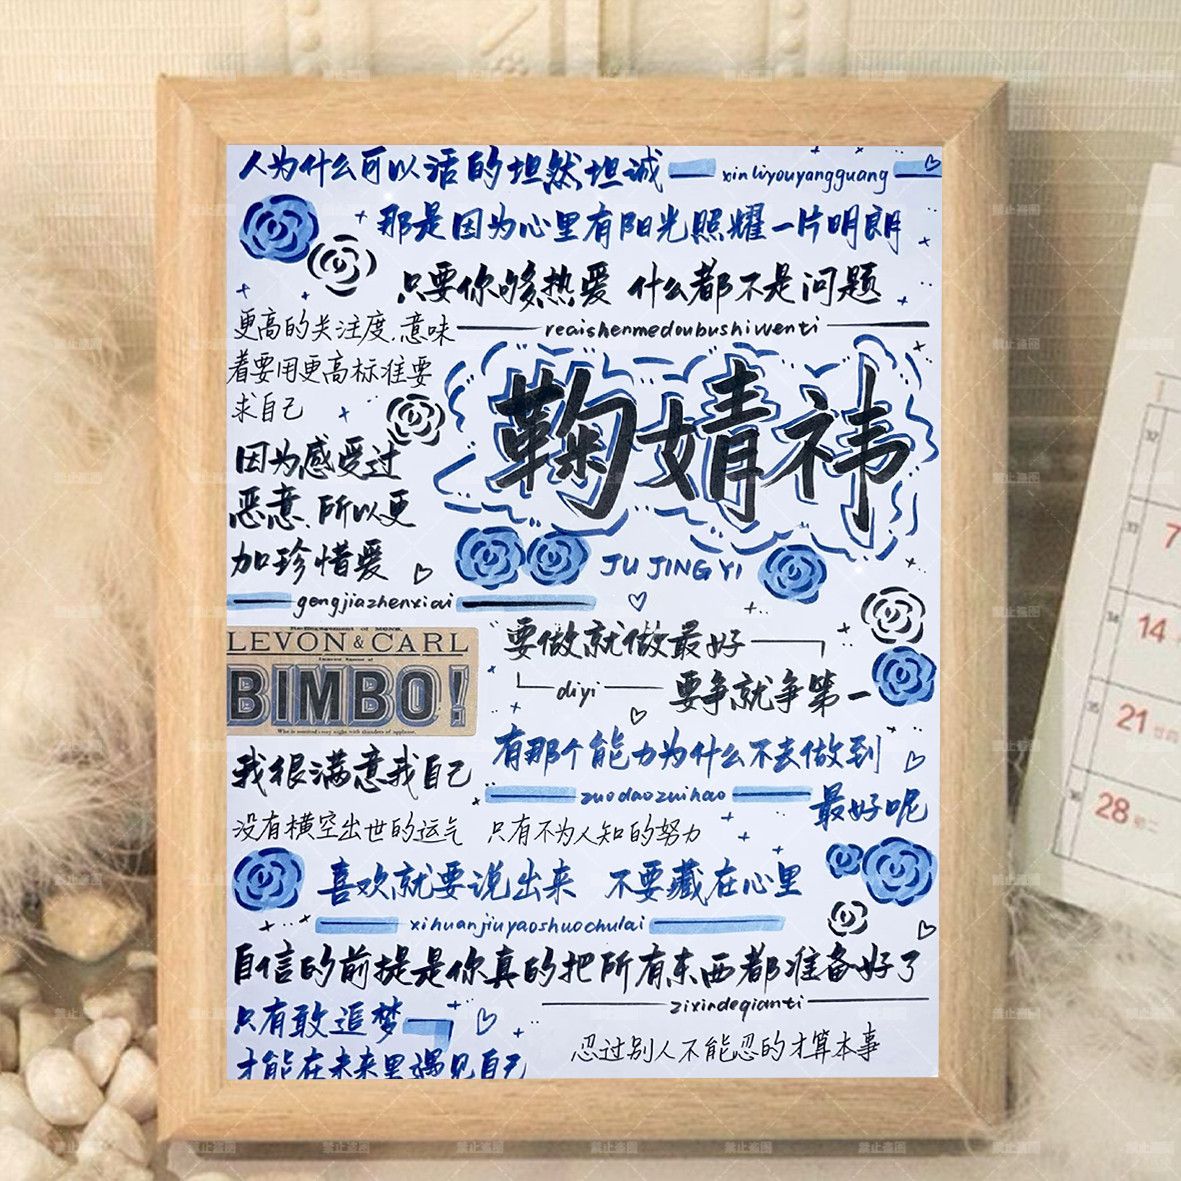 人为什么可以活的坦然坦诚
xinliyouyangguang
那是因为心里有阳光照耀一片明朗
只要你够热爱 什么都不是问题
reaishenmedoubushiwenti
更高的关注度.意味
着要用更高标准要
求自己
因为感受过
恶意.所以更
加珍惜爱
gengjiazhenxiai
鞠婧祎
JU JING YI
LEVON & CARL
BIMBO!
要做就做最好
diyi
要争就争第一
有那个能力为什么不去做到
zuodaozuihao
最好呢
我很满意我自己
没有横空出世的运气 只有不为人知的努力
喜欢就要说出来 不要藏在心里
xihuanjiuyaoshuochulai
自信的前提是你真的把所有东西都准备好了
zixindeqianti
只有敢追梦
才能在未来里遇见自己
忍过别人不能忍的才算本事
7
14
21
28
禁止盗图